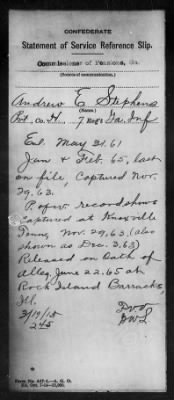 CONFEDERATE
Statement of Service Reference Slip.
Commissioner of Pensions, Ga.
(Source of communication.)
Andrew E Stephens
Pvt. Co. H. 7 Reg't Ga. Inf
Enl. May 31.61
Jan & Feb. 65, last
on file, Captured Nov.
29.63.
P. of w. record shows
Captured at Knoxville
Tenn, Nov. 29,63, (also
shown as Dec. 3.63)
Released on Oath of
Alleg. June 22.65 at
Rock Island Barracks,
Ill.
3/19/15
245